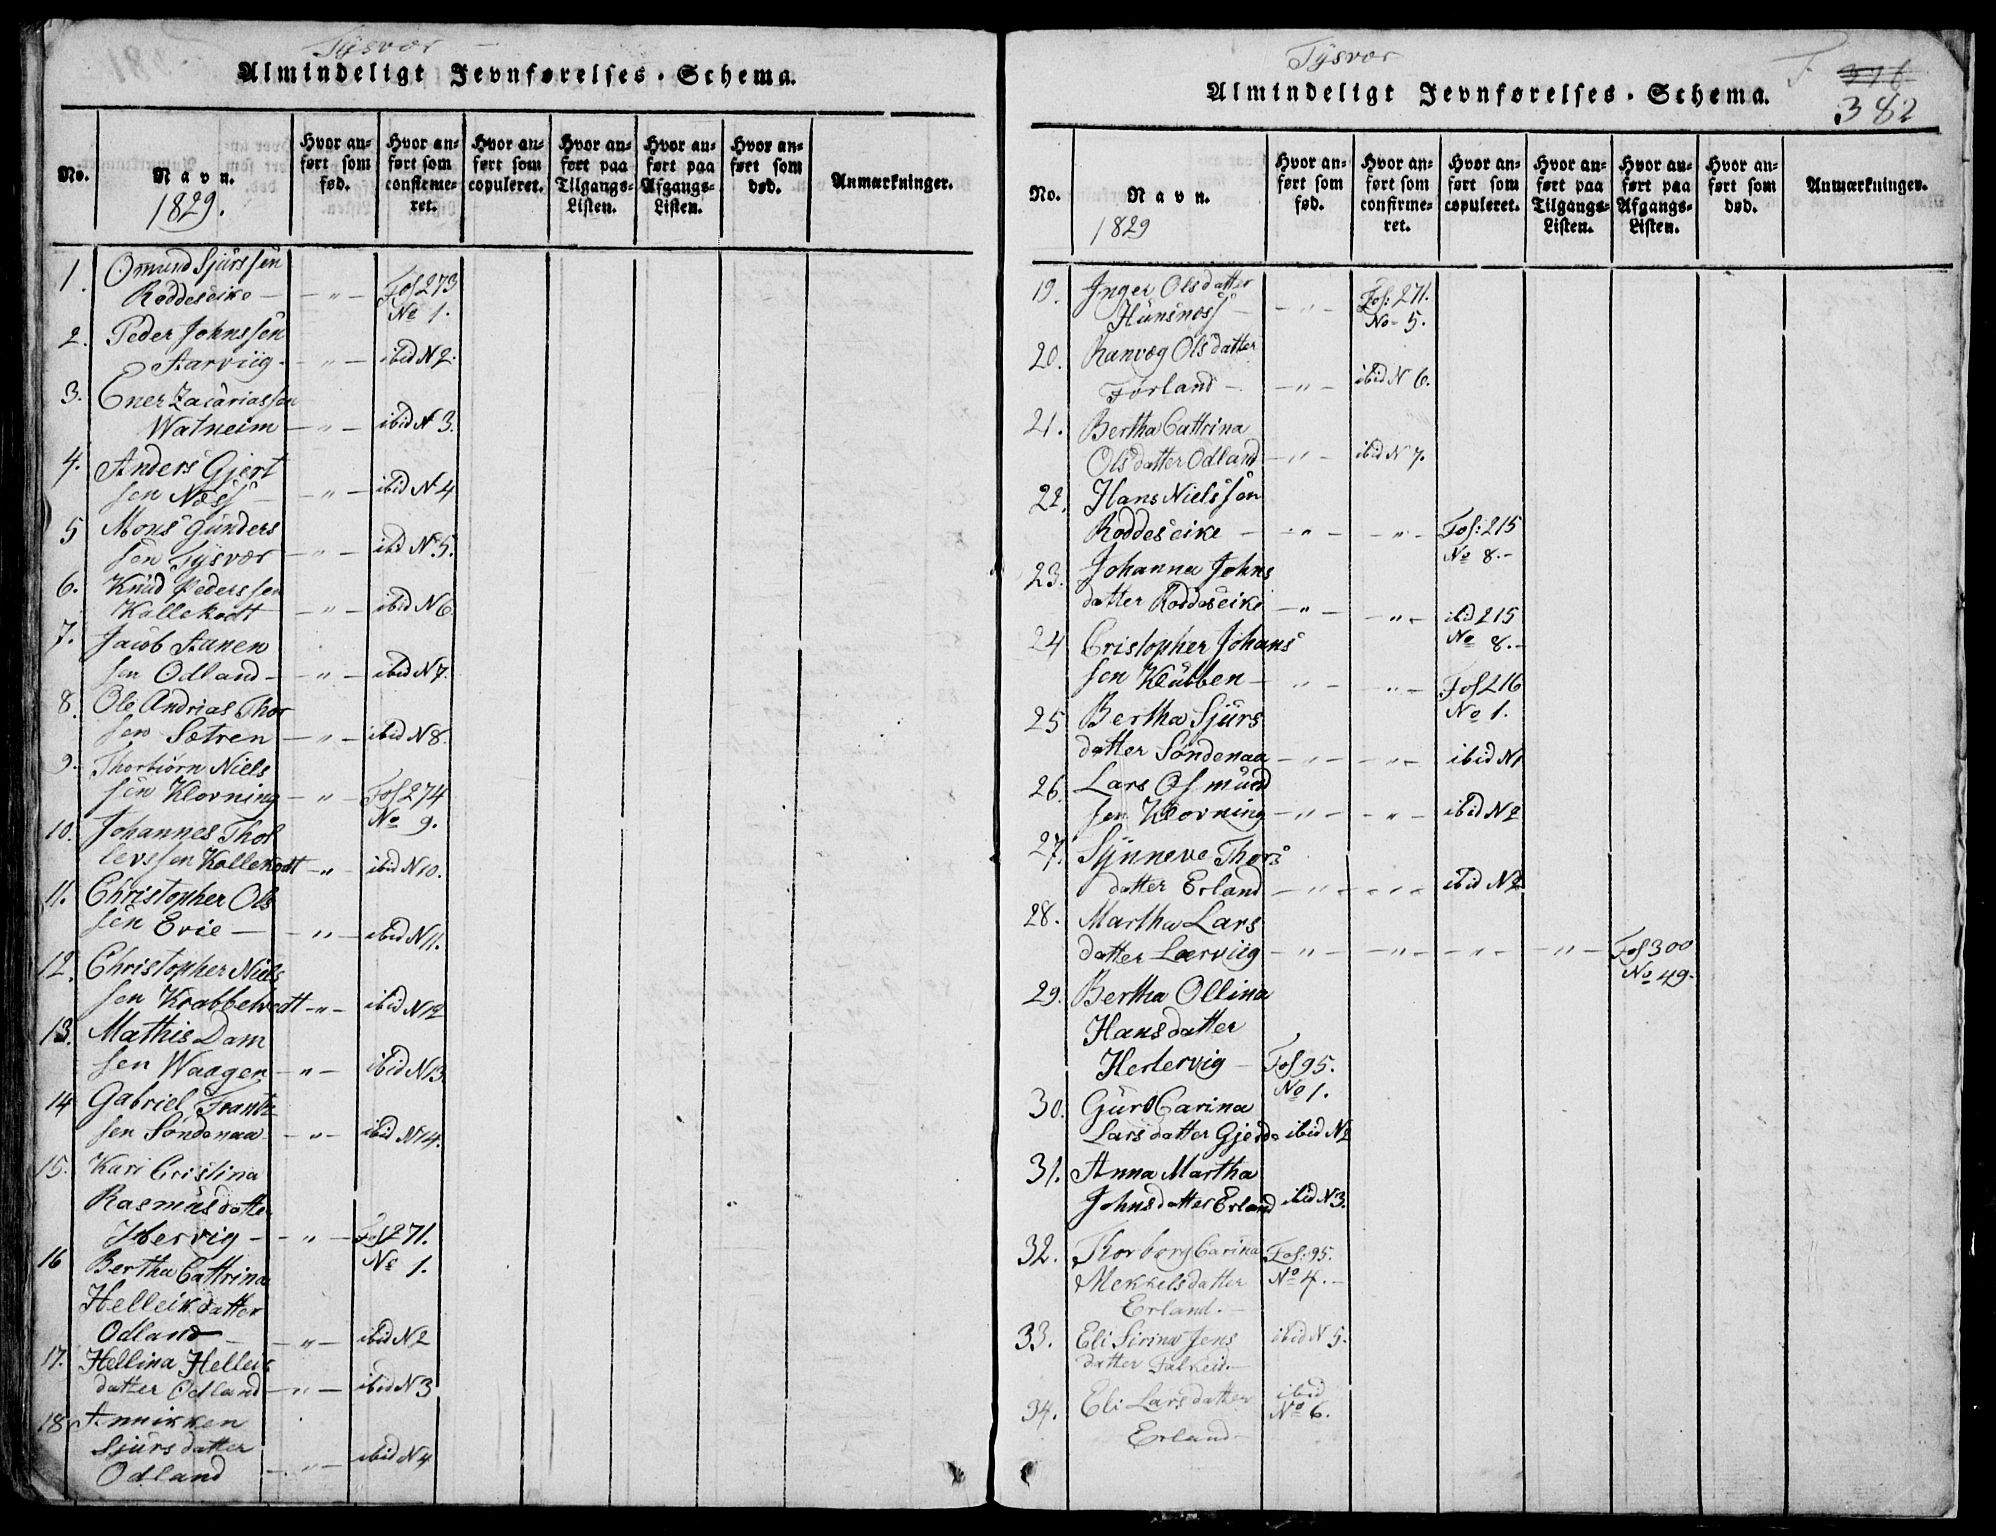 Tysvær
Almindeligt Jevnførelses-Schema.
No.
Navn.
1829.
Hvor an-
ført som
fød.
Hvor an-
ført som
confirme-
ret.
Hvor an-
ført som
copuleret.
Hvor an-
ført paa
Tilgangs-
Listen.
Hvor an-
ført paa
Afgangs-
Listen.
Hvor an-
ført som
død.
Anmærkninger.
1. Omund Sjurssen
Røddeseike — " — Fol 273
No 1.
2. Peder Johnssen
Aarviig — " — ibid N 2.
3. Ener Zacariassen
Watneim — " — ibid N 3.
4. Anders Gjert
sen Næss — " — ibid N 4
5 Mons Gunders
sen Tysvær — " — ibid N 5.
6. Knud Pederssen
Kallekodt — " — ibid N 6.
7. Jacob Aanen
sen Odland — " — ibid N 7.
8. Ole Andrias Thor
sen Sætren — " — ibid N 8.
9. Thorbiørn Niels
sen Klovning — " — Fol 274
No 9.
10. Johannes Thol
levssen Kallekodt — " — ibid N 10.
11. Christopher Ols
sen Evie — " — ibid N 11.
12. Christopher Niels
sen Krabbetvedt — " — ibid N 12
13. Mathis Dam
sen Waagen — " — ibid N 13
14 Gabriel Frantz
sen Søndenaa — " — ibid N 14.
15. Kari Cristina
Rasmusdatter
Hervig — " — Fol 271.
No 1.
16 Bertha Cattrina
Helleikdatter
Odland — " — ibid N 2
17. Hellina Helleis
datter Odland — " — ibid N 3
18 Annikken
Sjursdatter
Odland — " — ibid N 4
Tysvær
F. 376
382
Almindeligt Jevnførelses-Schema.
No.
Navn.
1829
Hvor an-
ført som
fød.
Hvor an-
ført som
confirme-
ret.
Hvor an-
ført som
copuleret.
Hvor an-
ført paa
Tilgangs-
Listen.
Hvor an-
ført paa
Afgangs-
Listen.
Hvor an-
ført som
død.
Anmærkninger.
19. Inger Olsdatter
Hunsnæss — " — Fol: 271.
No 5.
20. Ranvæg Olsdatter
Førland — " — ibid N 6.
21. Bertha Cattrina
Olsdatter Odland — " — ibid N 7.
22. Hans Nielssen
Røddeseike — " — — " — Fol: 215
No 8.-
23. Johanna Johns
datter Røddeseike — " — — " — ibid 215
No 8.-
24 Cristopher Johans
sen Klubben — " — — " — Fol 216
No 1.
25 Bertha Sjurs
datter Søndenaa — " — — " — ibid N 1
26. Lars Osmund
sen Klovning — " — — " — ibid N 2
27. Synneve Thors
datter Erland — " — — " — ibid N 2
28. Martha Lars
datter Lærviig — " — — " — — " — — " — Fol 300
No 49.
29. Bertha Ollina
Hansdatter
Hertervig — Fol 95.
No 1.
30. Guro Carina
Larsdatter Gjerde ibid N 2
31. Anna Martha
Johnsdatter Erland ibid N 3.
32. Thorborg Carina Fol: 95.
Mekkelsdatter No 4.-
Erland.-
33. Eli Sirina Jens ibid N 5.
datter Falkeid.-
34. Eli Larsdatter ibid
No 6.
Erland-